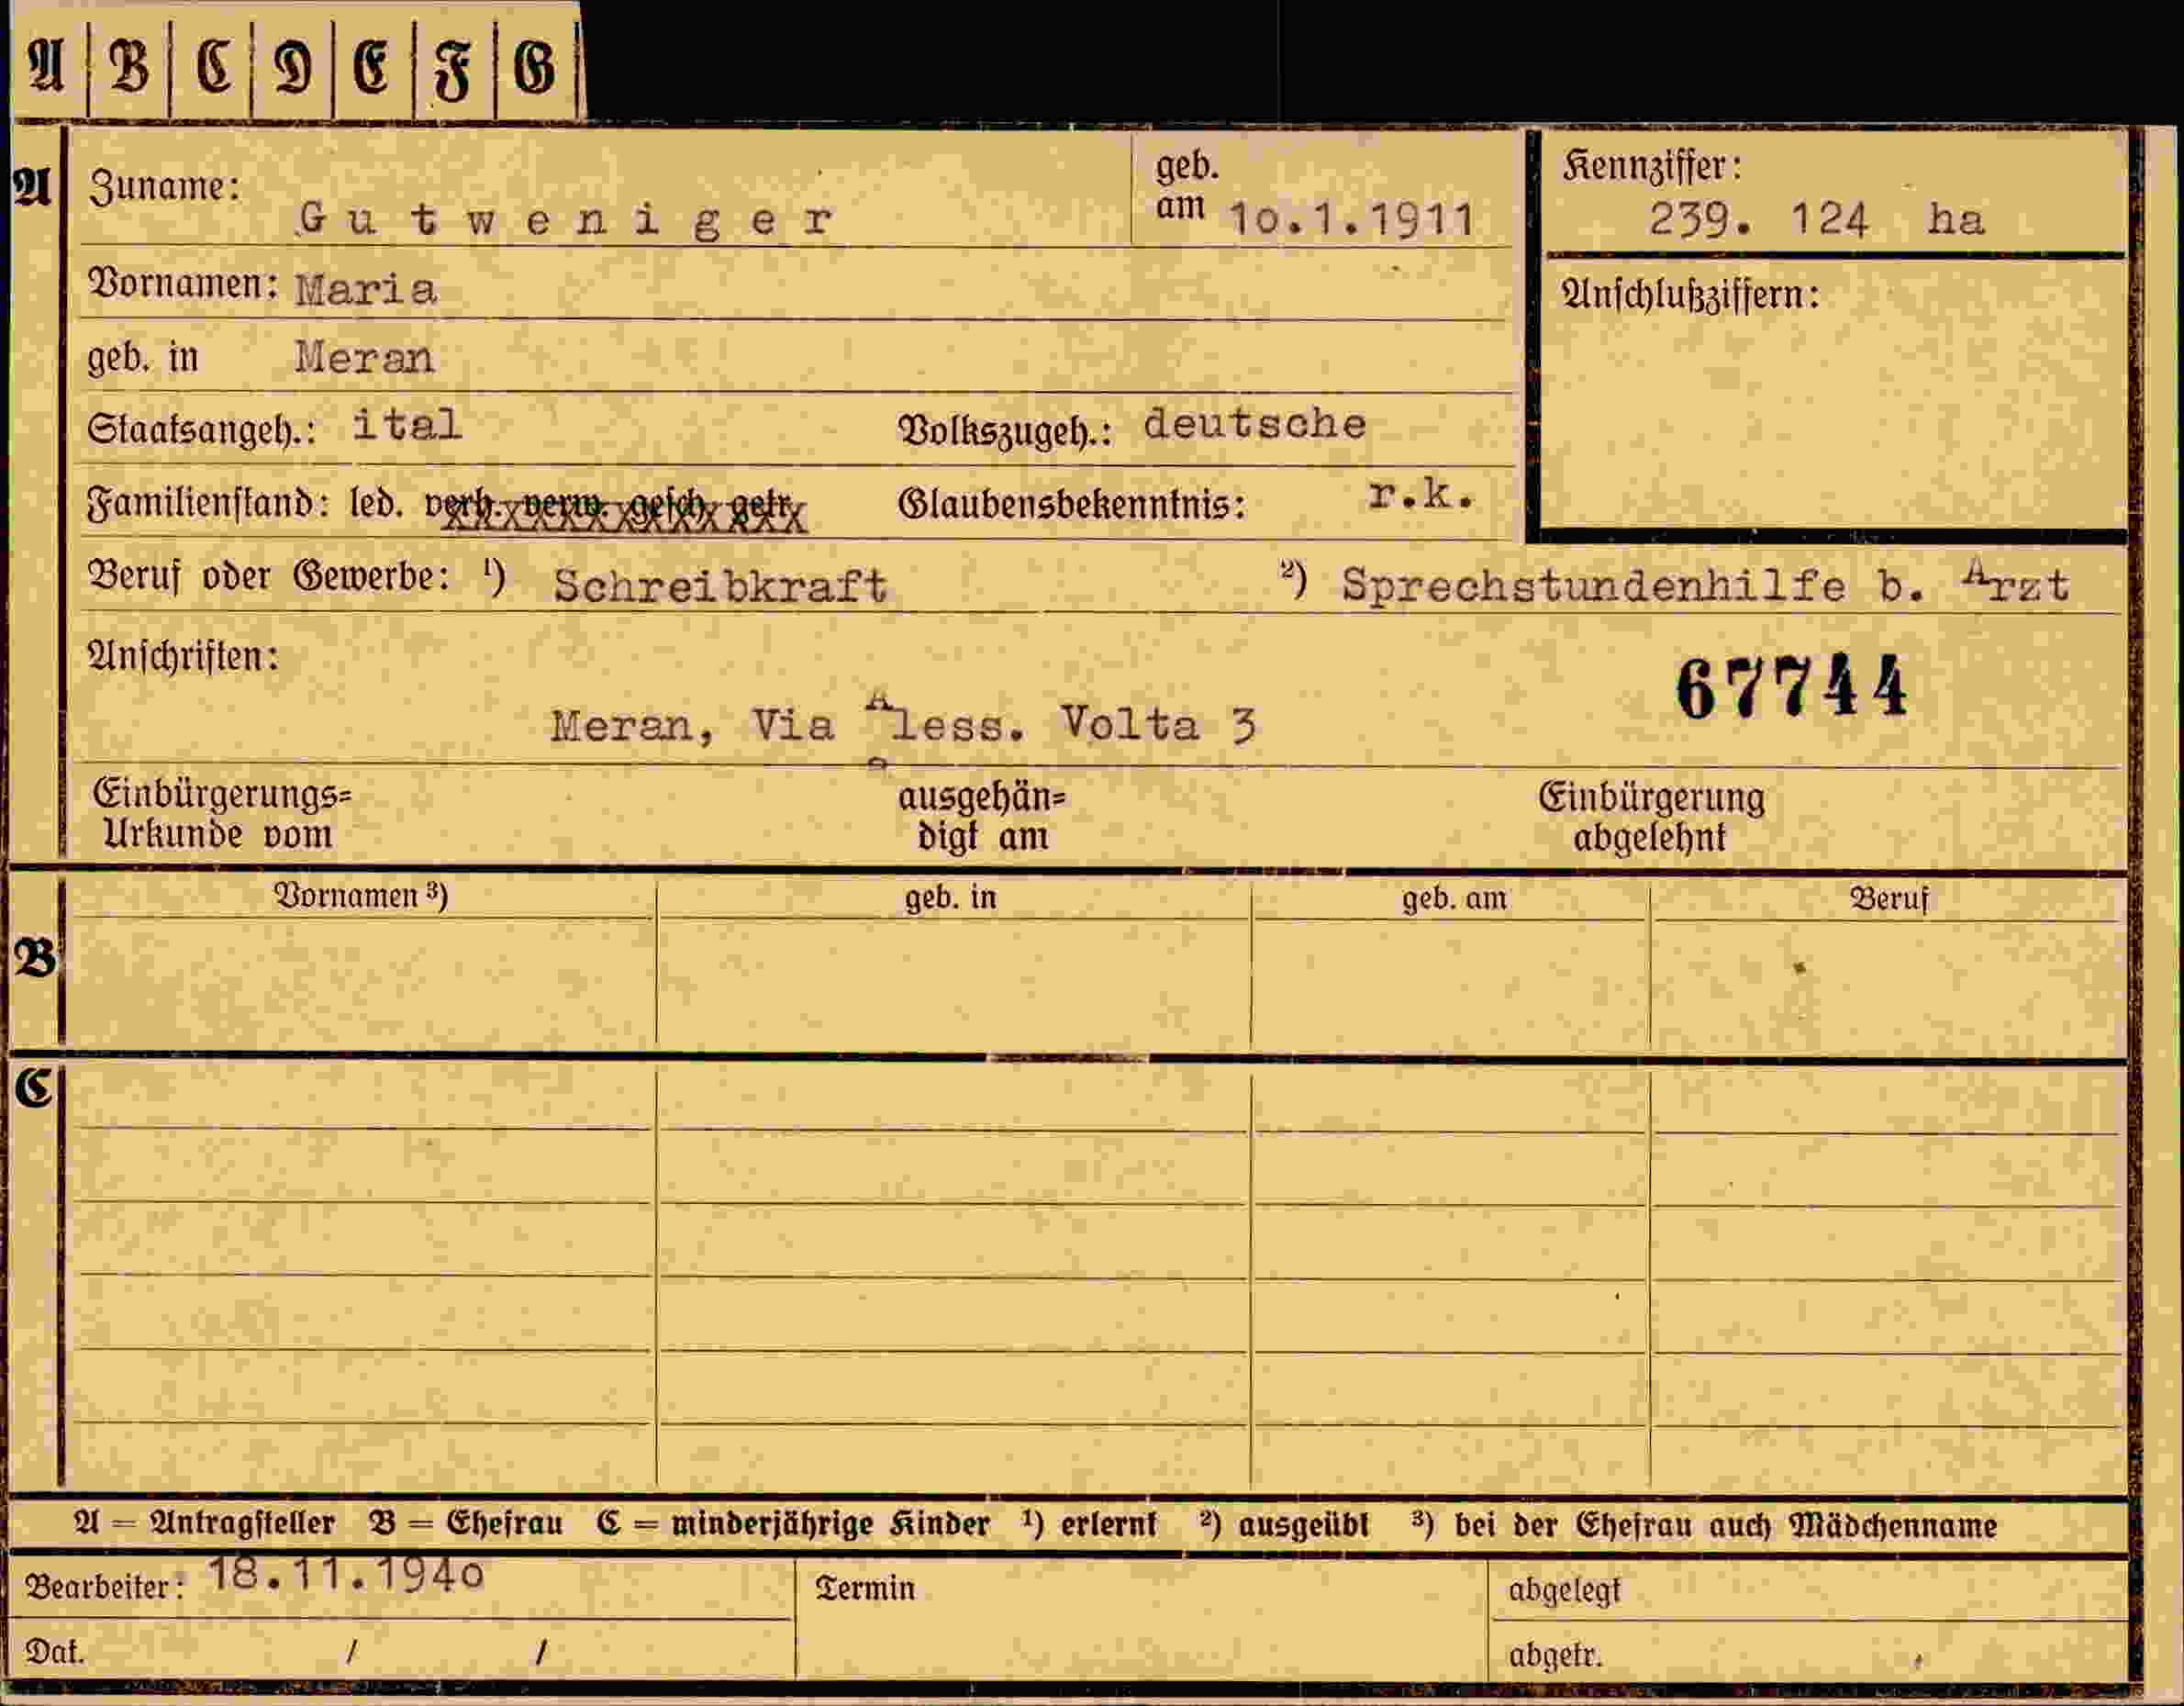 A B C D E F G
A Zuname: Gutweniger geb. am 10.1.1911 Kennziffer: 239. 124 ha
Vornamen: Maria Anschlußziffern:
geb. in Meran
Staatsangeh.: ital Volkszugeh.: deutsche
Familienstand: led. verh. verw. gesch. getr. Glaubensbekenntnis: r.k.
Beruf oder Gewerbe: ¹) Schreibkraft ²) Sprechstundenhilfe b. Arzt
Anschriften: 67744
Meran, Via Aless. Volta 3
Einbürgerungs= ausgehän= Einbürgerung
Urkunde vom digt am abgelehnt
Vornamen ³) geb. in geb. am Beruf
B
C
A = Antragsteller B = Ehefrau C = minderjährige Kinder ¹) erlernt ²) ausgeübt ³) bei der Ehefrau auch Mädchenname
Bearbeiter: 18.11.1940 Termin abgelegt
Dat. / / abgetr.